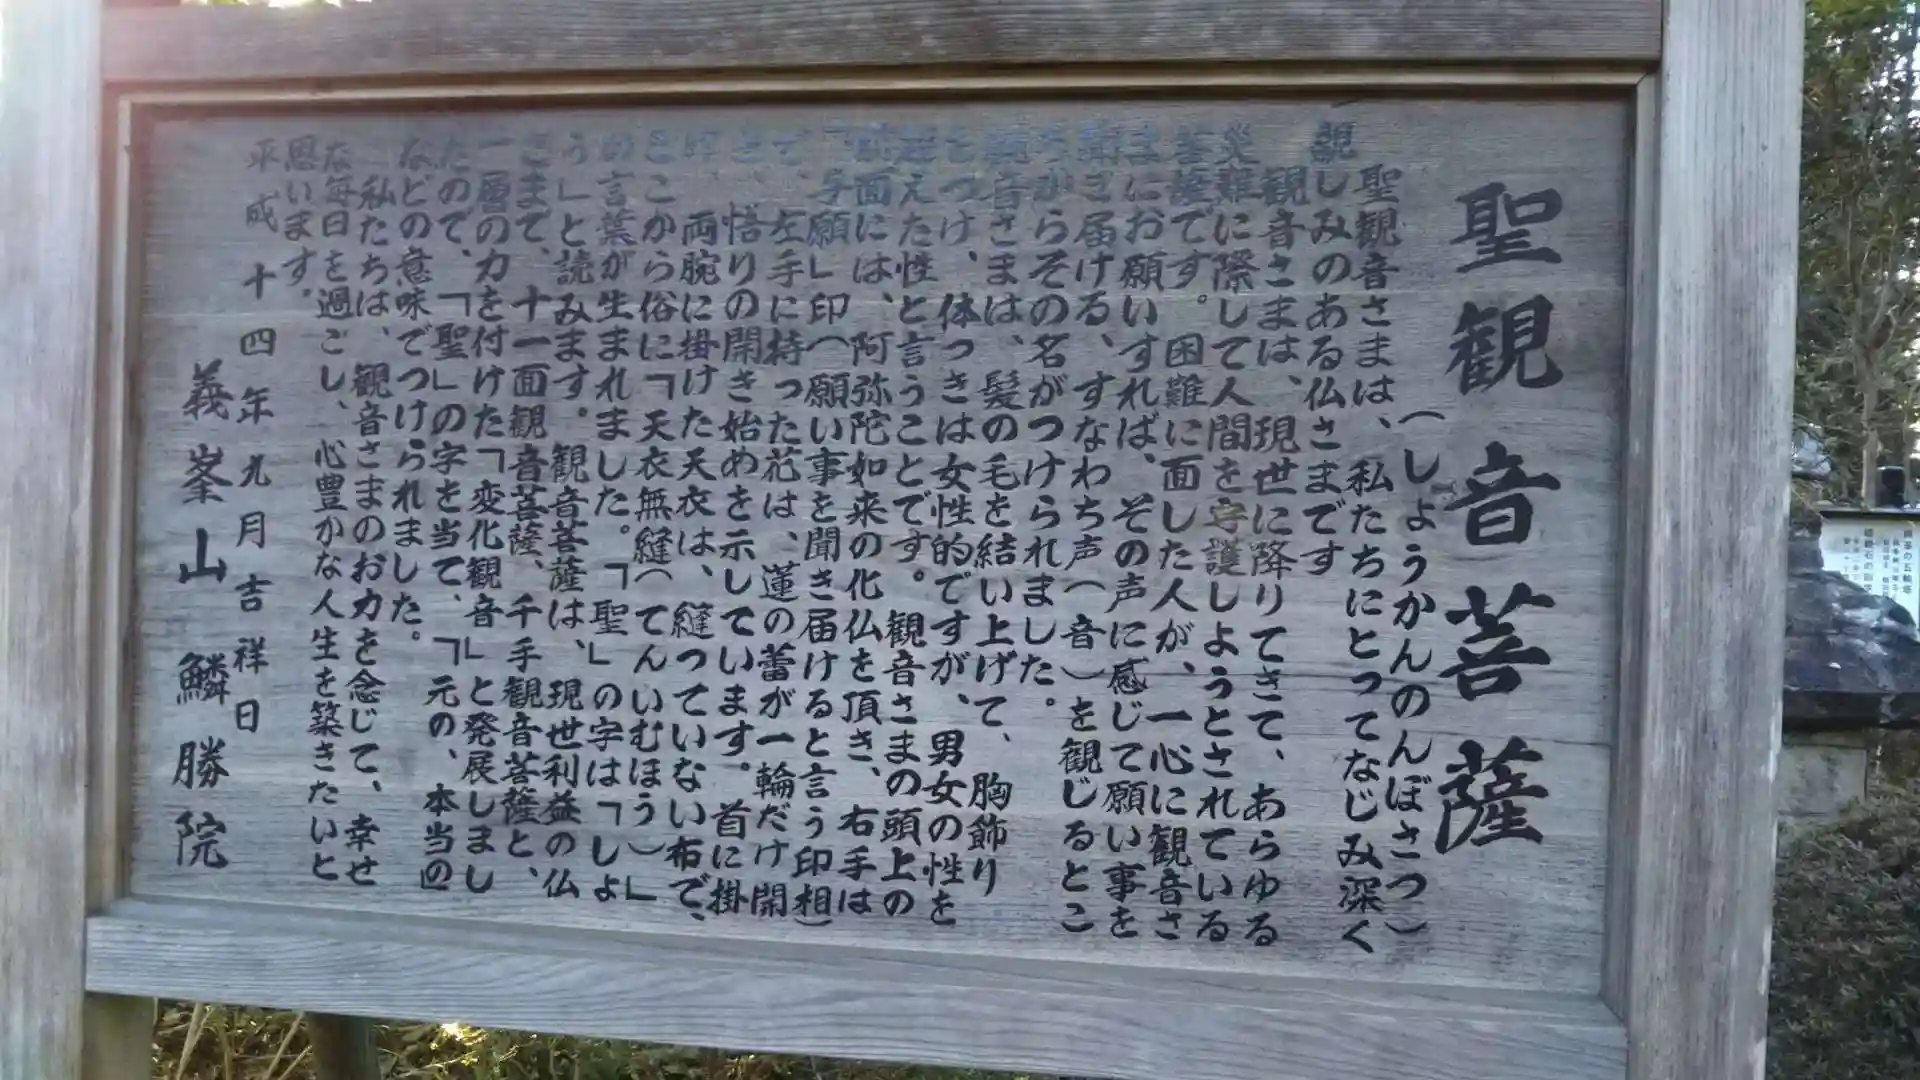 聖観音菩薩
(しょうかんのんぼさつ)
聖観音さまは、私たちにとってなじみ深く
親しみのある仏さまです
観音さまは、現世に降りてきて、あらゆる
災難に際して人間を守護しようとされている
菩薩です。困難に面した人が、一心に観音さ
まにお願いすれば、その声に感じて願い事を
聞き届ける、すなわち声(音)を観じるとこ
ろからその名がつけられました。
観音さまは、髪の毛を結い上げて、胸飾り
をつけ、体つきは女性的ですが、男女の性を
超えた性と言うことです。観音さまの頭上の
前面には、阿弥陀如来の化仏を頂き、右手は
「与願」印(願い事を聞き届けると言う印相)
で、左手に持った花は、蓮の蕾が一輪だけ開
き、悟りの開き始めを示しています。首に掛
け、両腕に掛けた天衣は、縫っていない布で、
ここから俗に「天衣無縫(てんいむほう)」
の言葉が生まれました。「聖」の字は「しょ
う」と読みます。観音菩薩は、現世利益の仏
さまで、十一面観音菩薩、千手観音菩薩と、
一層の力を付けた「変化観音」と発展しまし
たので、「聖」の字を当て、「元の、本当の」
などの意味でつけられました。
私たちは、観音さまのお力を念じて、幸せ
な毎日を過ごし、心豊かな人生を築きたいと
思います。
平成十四年九月吉祥日
義峯山 鱗勝院